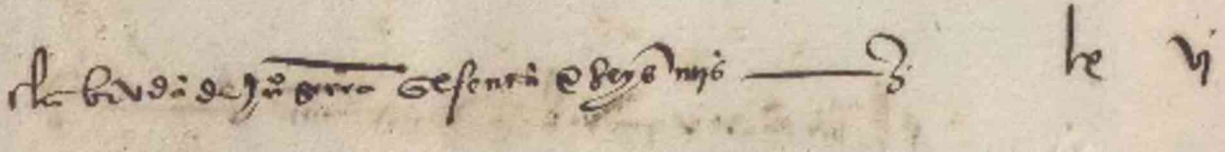 la bivda de Ju° grra sesenta e seys mrs lx vj